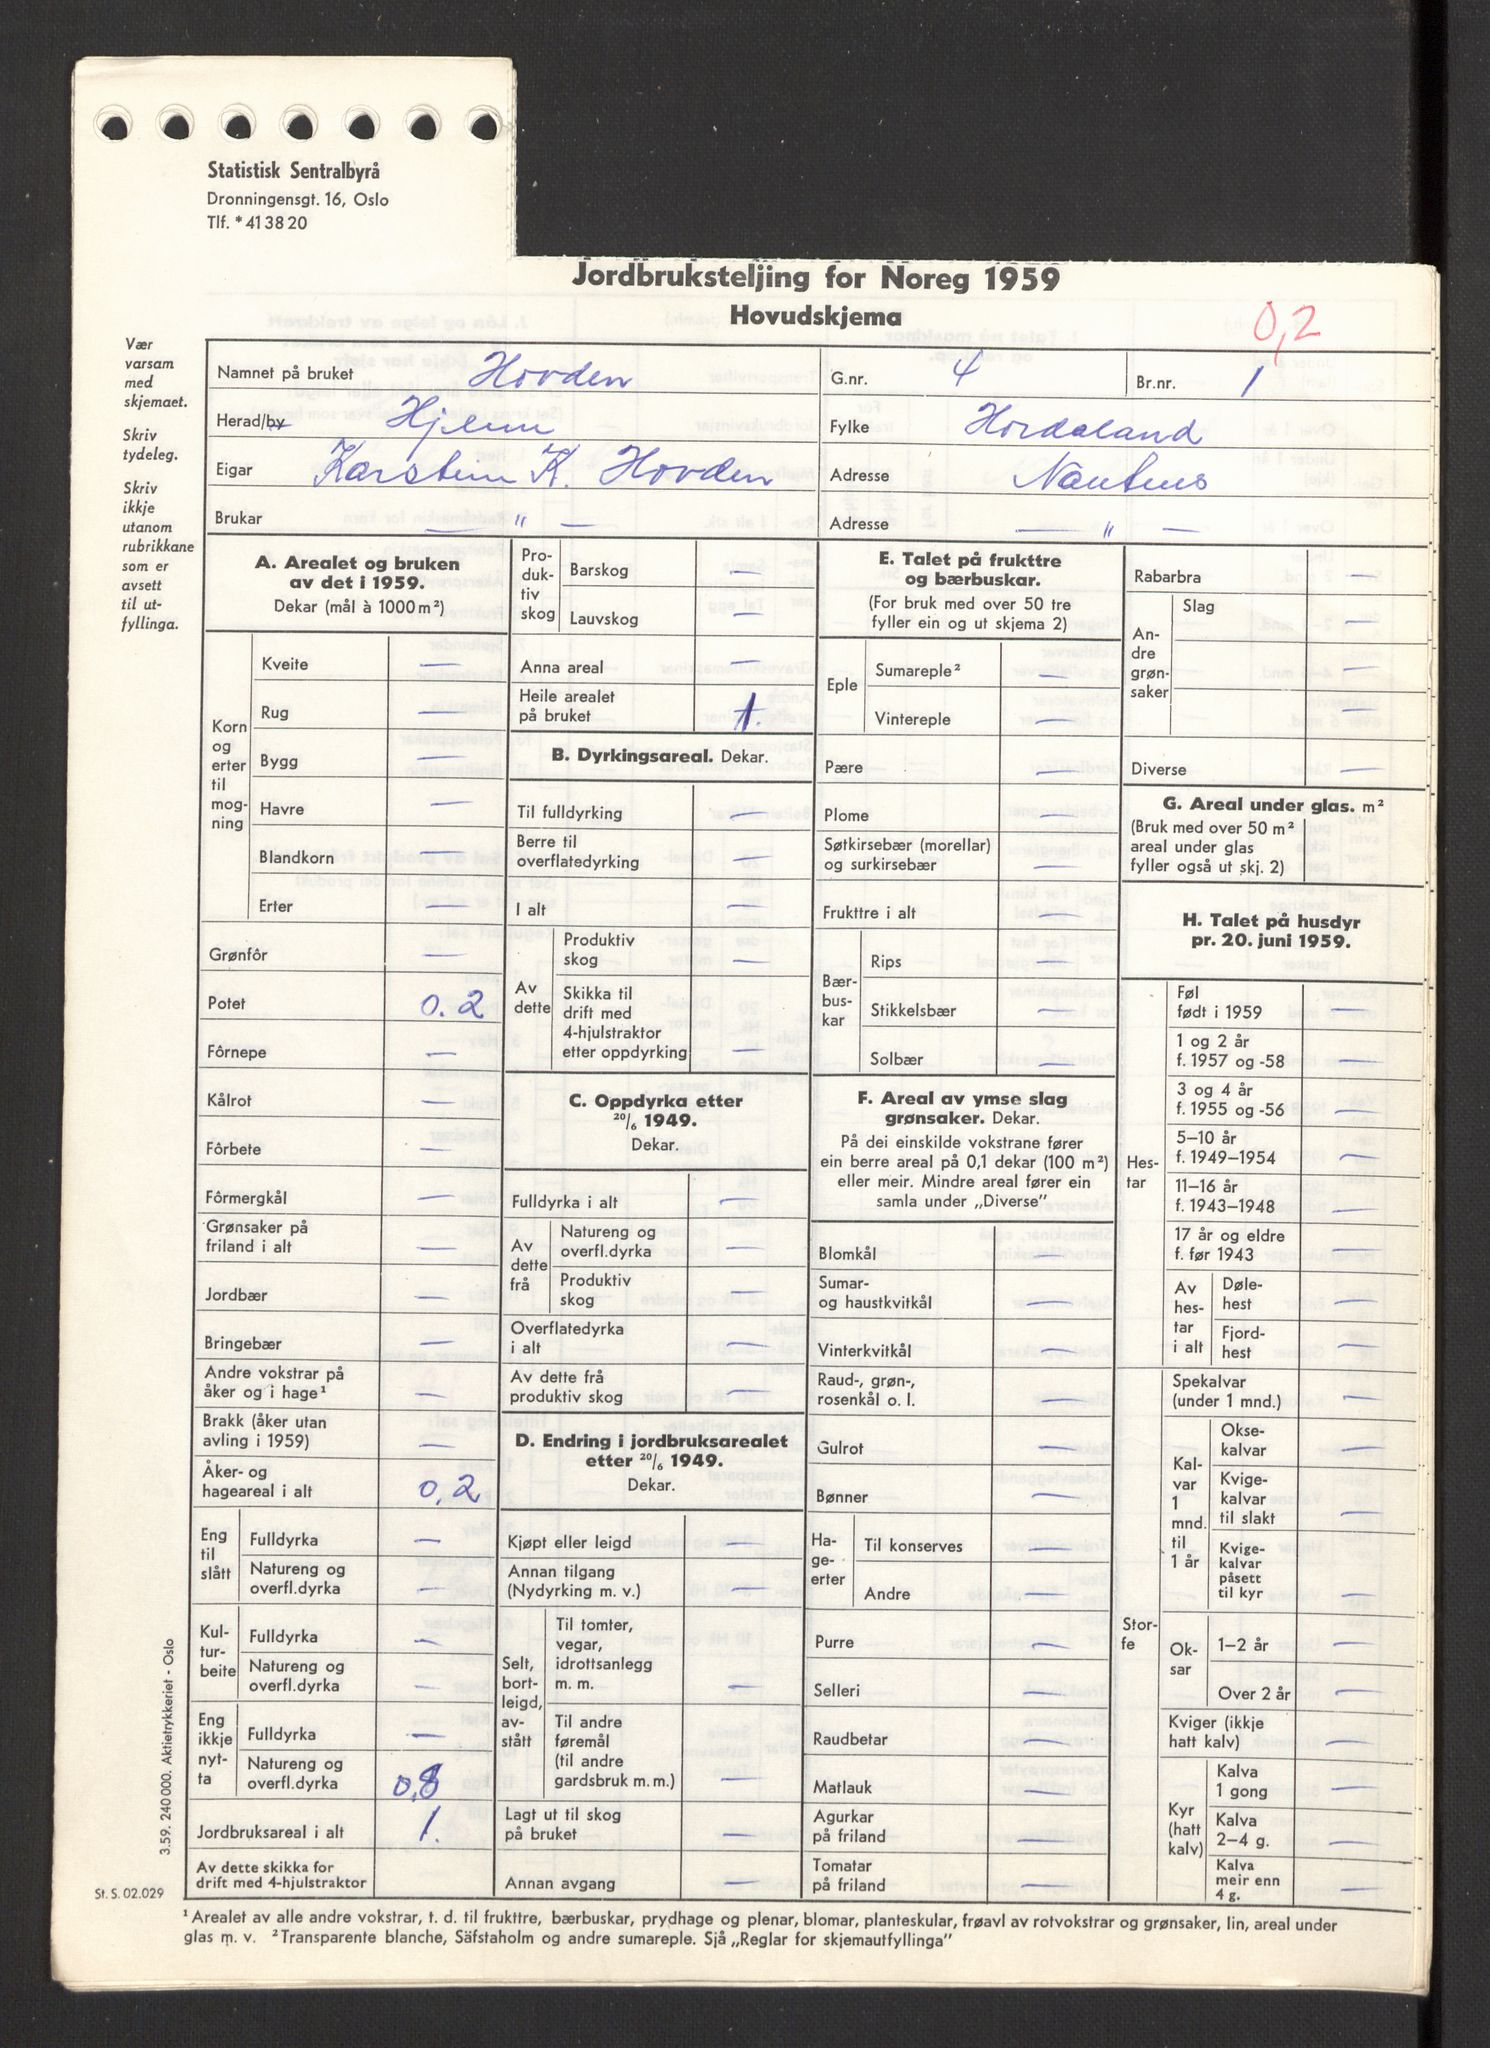 Statistisk Sentralbyrå
Dronningensgt. 16, Oslo
Tlf. *41 38 20
Jordbruksteljing for Noreg 1959
Hovudskjema
0,2
Vær
varsam
med
skjemaet.
Skriv
tydeleg.
Skriv
ikkje
utanom
rubrikkane
som er
avsett
til ut-
fyllinga.
Namnet på bruket Hovden G.nr. 4 Br.nr. 1
Herad/by Hjelme Fylke Hordaland
Eigar Karstein K. Hovden Adresse Nautnes
Brukar — " — Adresse — " —
A. Arealet og bruken
av det i 1959.
Dekar (mål à 1000 m²)
Korn
og
erter
til
mog-
ning
Kveite —
Rug —
Bygg —
Havre —
Blandkorn —
Erter —
Grønfôr —
Potet 0.2
Fôrnepe —
Kålrot —
Fôrbete —
Fôrmergkål —
Grønsaker på
friland i alt —
Jordbær —
Bringebær —
Andre vokstrar på
åker og i hage¹ —
Brakk (åker utan
avling i 1959) —
Åker- og
hageareal i alt 0,2
Eng
til
slått
Fulldyrka —
Natureng og
overfl.dyrka —
Kul-
tur-
beite
Fulldyrka —
Natureng og
overfl.dyrka —
Eng
ikkje
nyt-
ta
Fulldyrka —
Natureng og
overfl.dyrka 0,8
Jordbruksareal i alt 1.
Av dette skikka for
drift med 4-hjulstraktor
Pro-
duk-
tiv
skog
Barskog —
Lauvskog —
Anna areal —
Heile arealet
på bruket 1.
B. Dyrkingsareal. Dekar.
Til fulldyrking —
Berre til
overflatedyrking —
I alt —
Av
dette
Produktiv
skog —
Skikka til
drift med
4-hjulstraktor
etter oppdyrking —
C. Oppdyrka etter
20/6 1949.
Dekar.
Fulldyrka i alt —
Av
dette
frå
Natureng og
overfl.dyrka —
Produktiv
skog —
Overflatedyrka
i alt —
Av dette frå
produktiv skog —
D. Endring i jordbruksarealet
etter 20/6 1949.
Dekar.
Kjøpt eller leigd —
Annan tilgang
(Nydyrking m. v.) —
Selt,
bort-
leigd,
av-
stått
Til tomter,
vegar,
idrottsanlegg
m. m. —
Til andre
føremål
(til andre
gardsbruk m. m.) —
Lagt ut til skog
på bruket —
Annan avgang —
E. Talet på frukttre
og bærbuskar.
(For bruk med over 50 tre
fyller ein og ut skjema 2)
Eple
Sumareple² —
Vintereple —
Pære —
Plome —
Søtkirsebær (morellar)
og surkirsebær —
Frukttre i alt —
Bær-
bus-
kar
Rips —
Stikkelsbær —
Solbær —
F. Areal av ymse slag
grønsaker. Dekar.
På dei einskilde vokstrane fører
ein berre areal på 0,1 dekar (100 m²)
eller meir. Mindre areal fører ein
samla under „Diverse”
Blomkål —
Sumar-
og haustkvitkål —
Vinterkvitkål —
Raud-, grøn-,
rosenkål o. l. —
Gulrot —
Bønner —
Ha-
ge-
erter
Til konserves —
Andre —
Purre —
Selleri —
Raudbetar —
Matlauk —
Agurkar
på friland —
Tomatar
på friland —
Rabarbra —
An-
dre
grøn-
saker
Slag —
—
—
Diverse —
G. Areal under glas. m²
(Bruk med over 50 m²
areal under glas
fyller også ut skj. 2)
H. Talet på husdyr
pr. 20. juni 1959.
Hes-
tar
Føl
født i 1959 —
1 og 2 år
f. 1957 og -58 —
3 og 4 år
f. 1955 og -56 —
5–10 år
f. 1949–1954 —
11–16 år
f. 1943–1948 —
17 år og eldre
f. før 1943 —
Av
hes-
tar
i alt
Døle-
hest —
Fjord-
hest —
Stor-
fe
Spekalvar
(under 1 mnd.) —
Kal-
var
1
mnd.
til
1 år
Okse-
kalvar —
Kvige-
kalvar
til slakt —
Kvige-
kalvar
påsett
til kyr —
Ok-
sar
1–2 år —
Over 2 år —
Kviger (ikkje
hatt kalv) —
Kyr
(hatt
kalv)
Kalva
1 gong —
Kalva
2–4 g. —
Kalva
meir enn
4 g. —
3.59. 240 000. Aktietrykkeriet - Oslo
St. S. 02.029
¹ Arealet av alle andre vokstrar, t. d. til frukttre, bærbuskar, prydhage og plenar, blomar, planteskular, frøavl av rotvokstrar og grønsaker, lin, areal under
glas m. v. ² Transparente blanche, Säfstaholm og andre sumareple. Sjå „Reglar for skjemautfyllinga”